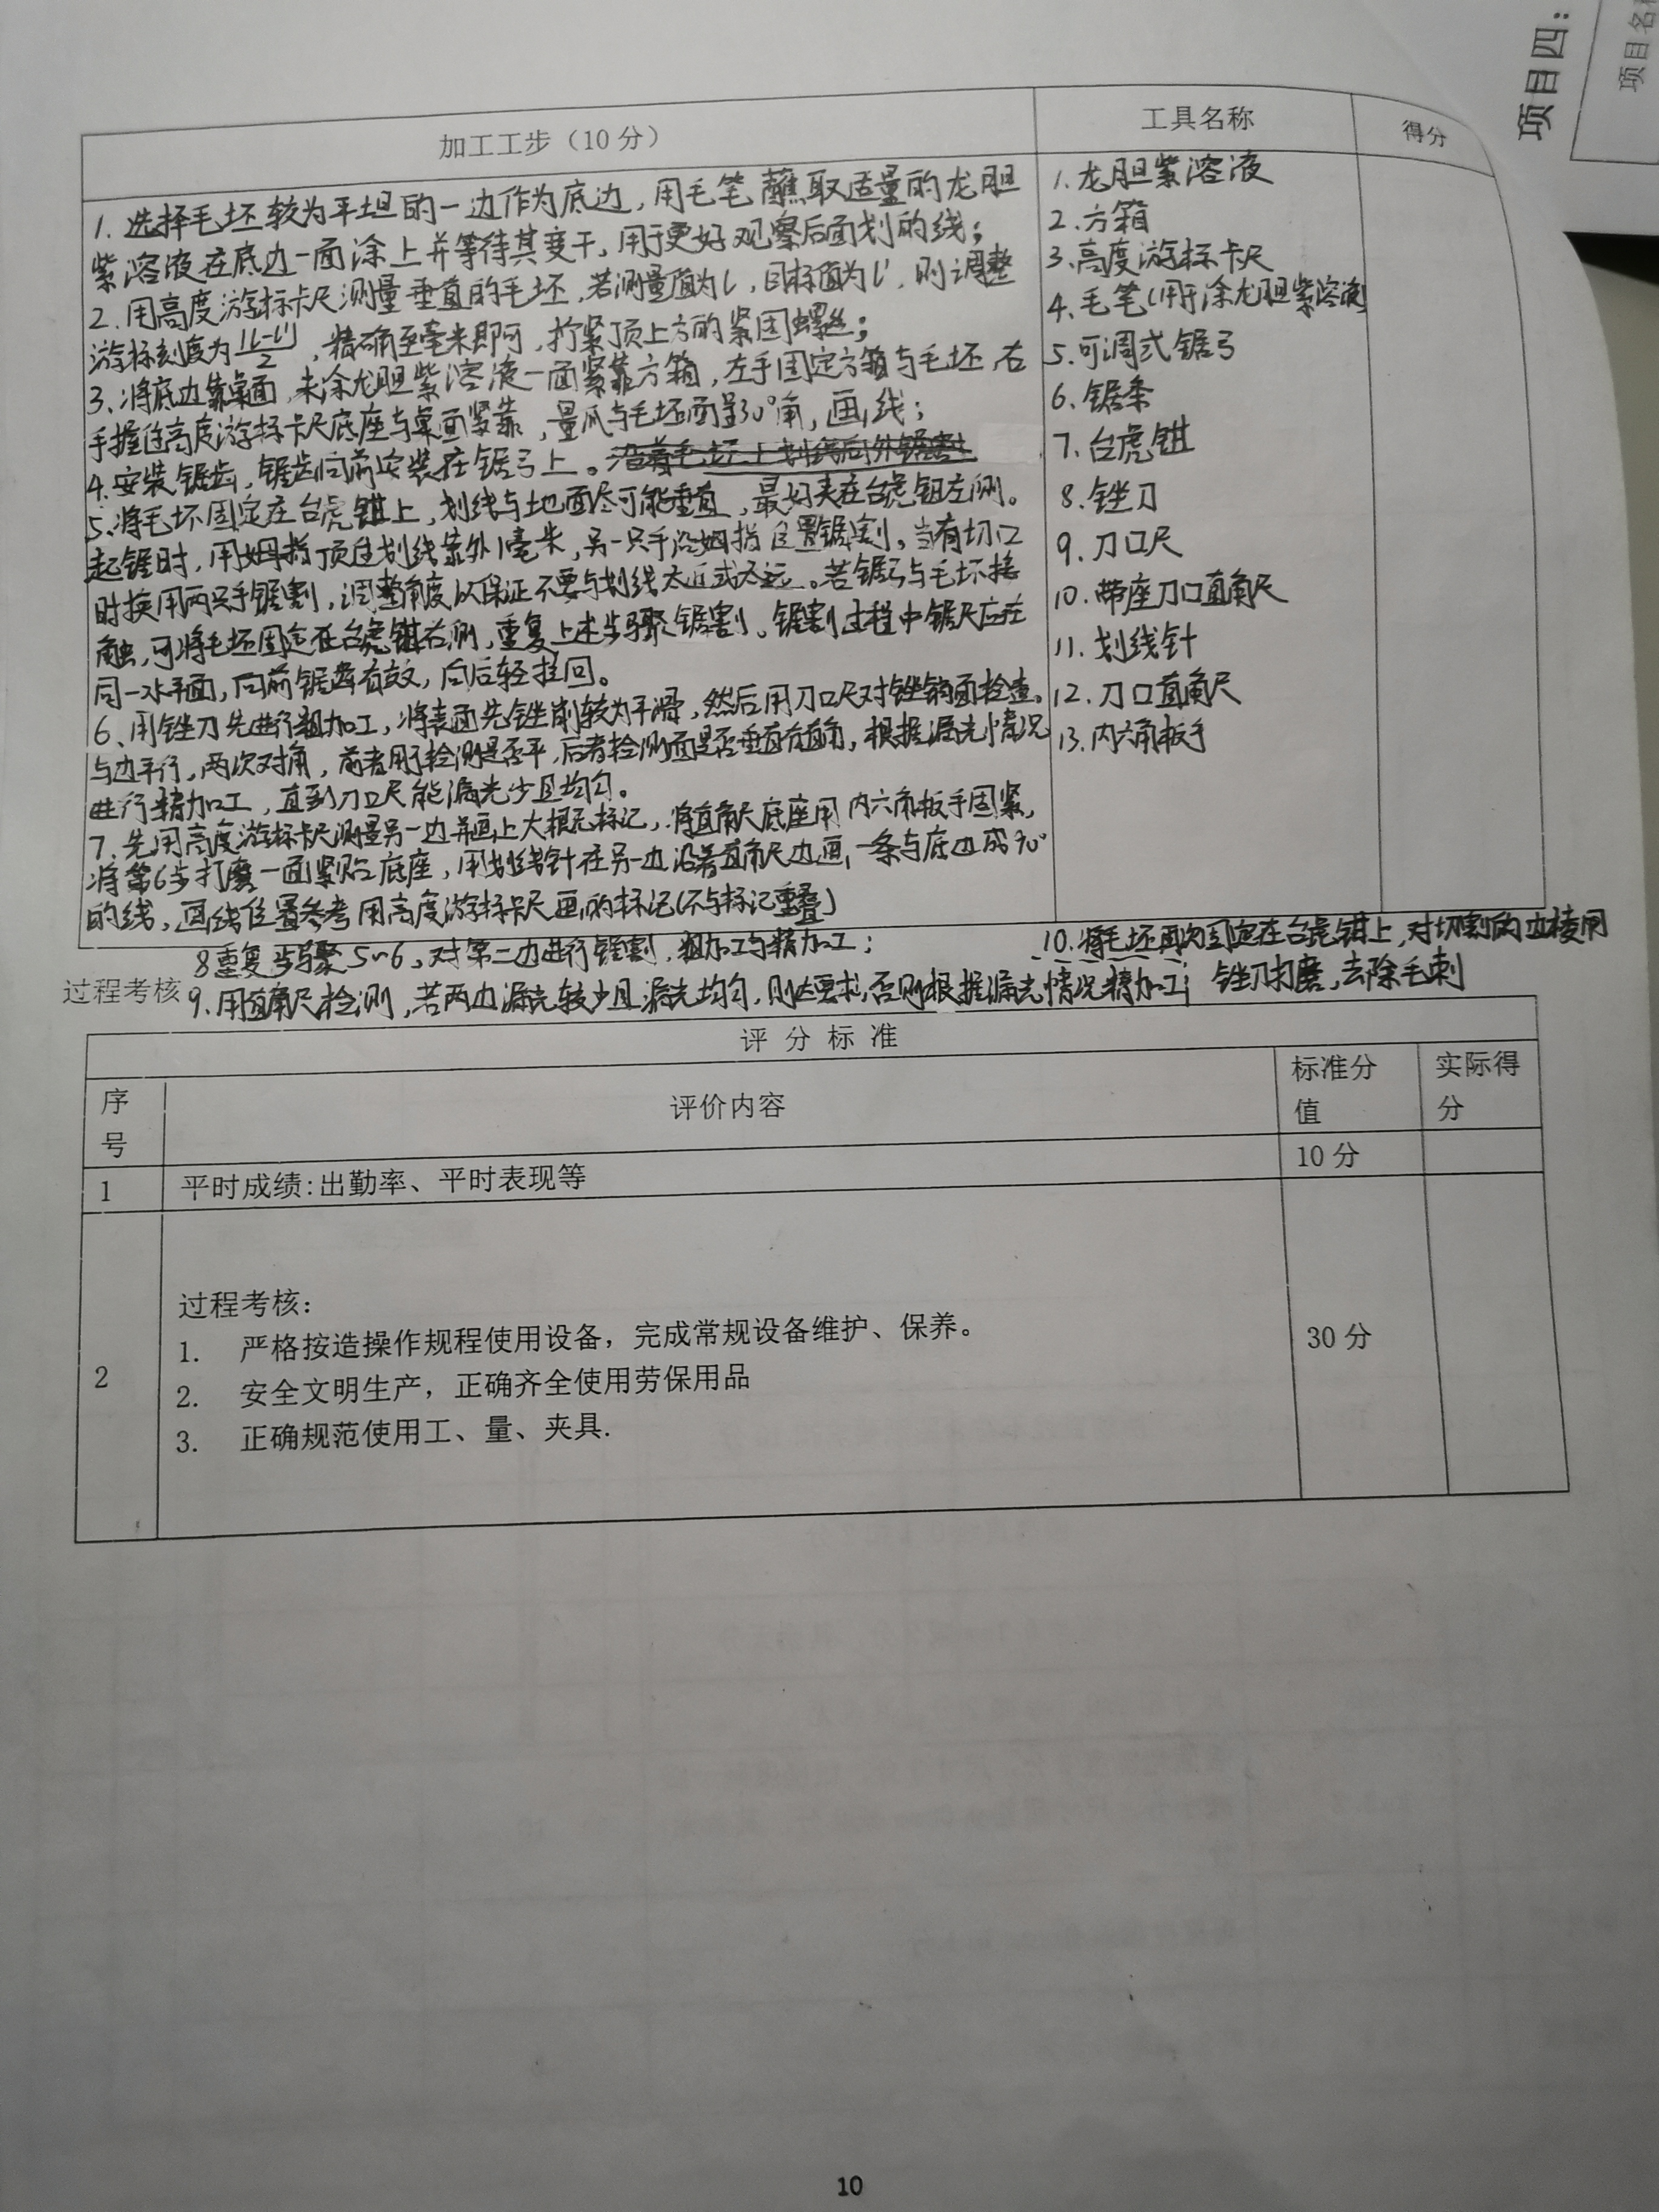 项目四：
项目名
加工工步（10 分）
工具名称
得分
1. 选择毛坯较为平坦的一边作为底边，用毛笔蘸取适量的龙胆
紫溶液在底边一面涂上并等待其变干，用于更好观察后面划的线；
2. 用高度游标卡尺测量垂直的毛坯，若测量值为l，目标值为l'，则调整
游标刻度为(l-l')/2，精确至毫米即可，拧紧顶上方的紧固螺丝；
3. 将底边靠桌面，未涂龙胆紫溶液一面紧靠方箱，左手固定方箱与毛坯，右
手握住高度游标卡尺底座与桌面紧靠，量爪与毛坯面呈30°角，画线；
4. 安装锯齿，锯齿向前安装在锯弓上。沿着毛坯上划线向外锯割
5. 将毛坯固定在台虎钳上，划线与地面尽可能垂直，最好夹在台虎钳左侧。
起锯时，用姆指顶住划线靠外1毫米，另一只手沿姆指位置锯割，当有切口
时换用两只手锯割，调整角度以保证不要与划线太近或太远。若锯弓与毛坯接
触，可将毛坯固定在台虎钳右侧，重复上述步骤锯割。锯割过程中锯尺应在
同一水平面，向前锯齿有效，向后轻拉回。
6. 用锉刀先进行粗加工，将表面先锉削较为平滑，然后用刀口尺对锉销面检查。
与边平行，两次对角，前者用于检测是否平，后者检测面是否垂直有直角，根据漏光情况
进行精加工，直到刀口尺能漏光少且均匀。
7. 先用高度游标卡尺测量另一边并画上大概的标记，将直角尺底座用内六角板手固紧，
将第6步打磨一面紧贴底座，用划线针在另一边沿着直角尺边画一条与底边成90°
的线，画线位置参考用高度游标卡尺画的标记(不与标记重叠)
1. 龙胆紫溶液
2. 方箱
3. 高度游标卡尺
4. 毛笔(用于涂龙胆紫溶液)
5. 可调式锯弓
6. 锯条
7. 台虎钳
8. 锉刀
9. 刀口尺
10. 带座刀口直角尺
11. 划线针
12. 刀口直角尺
13. 内六角板手
8 重复步骤5~6，对第二边进行锯割，粗加工与精加工；
过程考核
9. 用直角尺检测，若两边漏光较少且漏光均匀，则达要求，否则根据漏光情况精加工；
10. 将毛坯再次固定在台虎钳上，对切割的边棱用
锉刀打磨，去除毛刺
评 分 标 准
序号
评价内容
标准分值
实际得分
1
平时成绩：出勤率、平时表现等
10 分
2
过程考核：
1. 严格按造操作规程使用设备，完成常规设备维护、保养。
2. 安全文明生产，正确齐全使用劳保用品
3. 正确规范使用工、量、夹具.
30 分
10